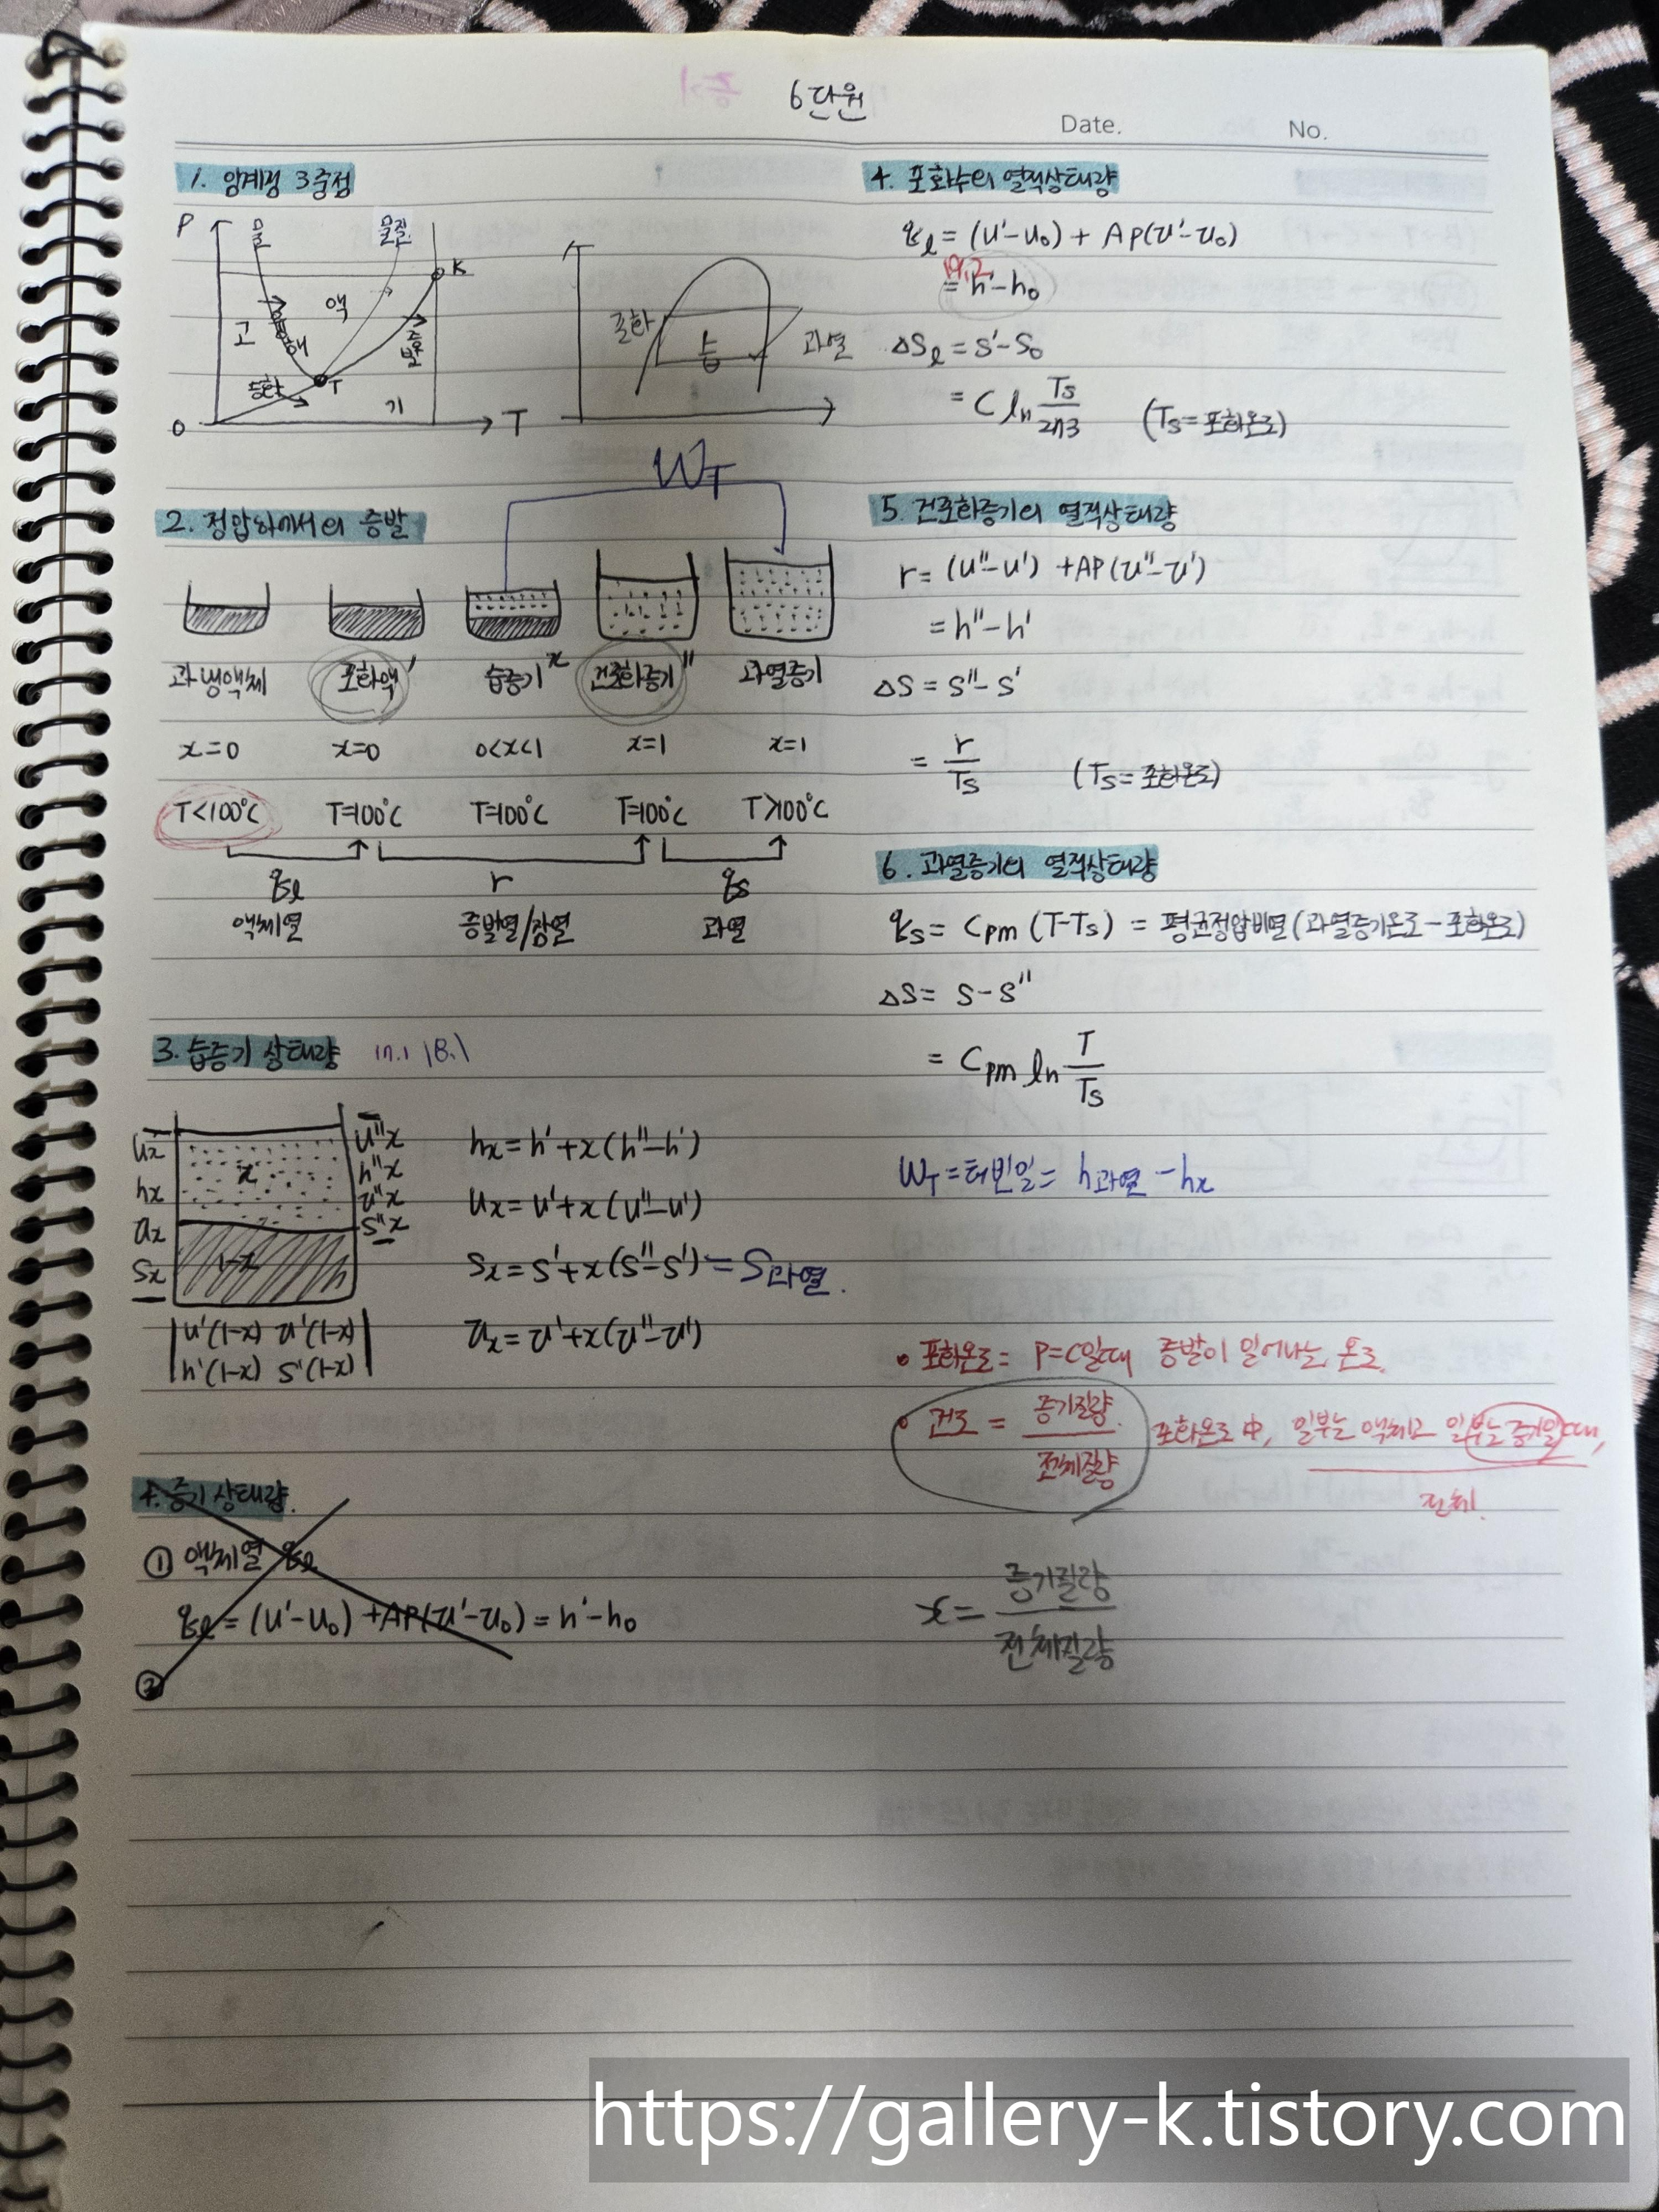 6단원
Date. No.
1. 임계점 3중점
P 물 물질 K
고 융해 액 증발
승화 T 기
0 T
T
포화 습 과열
2. 정압하에서의 증발
W_T
과냉액체 포화액' 습증기x 건포화증기" 과열증기
x=0 x=0 0<x<1 x=1 x=1
T<100℃ T=100℃ T=100℃ T=100℃ T>100℃
q_l r q_s
액체열 증발열/잠열 과열
3. 습증기 상태량 17.1 18.1
u_x u"x
h_x x h"x
v_x v"x
s_x 1-x s"x
u'(1-x) v'(1-x)
h'(1-x) s'(1-x)
h_x = h' + x(h"-h')
u_x = u' + x(u"-u')
s_x = s' + x(s"-s') = s과열.
v_x = v' + x(v"-v')
4. 증기 상태량.
① 액체열 q_l
q_l = (u'-u_0) + AP(v'-v_0) = h'-h_0
②
4. 포화수의 열적상태량
q_l = (u'-u_0) + AP(v'-v_0)
19.2
= h'-h_0
△S_l = s'-s_0
= C ln Ts/273 (Ts=포화온도)
5. 건포화증기의 열적상태량
r = (u"-u') + AP(v"-v')
= h"-h'
△S = s"-s'
= r/Ts (Ts=포화온도)
6. 과열증기의 열적상태량
q_s = Cpm (T-Ts) = 평균정압비열(과열증기온도-포화온도)
△S = s-s"
= Cpm ln T/Ts
W_T = 터빈일 = h과열 - h_x
• 포화온도 = P=C일때 증발이 일어나는 온도.
• 건도 = 증기질량/전체질량 포화온도 中, 일부는 액체고 일부는 증기일때,
전체.
x = 증기질량/전체질량
https://gallery-k.tistory.com